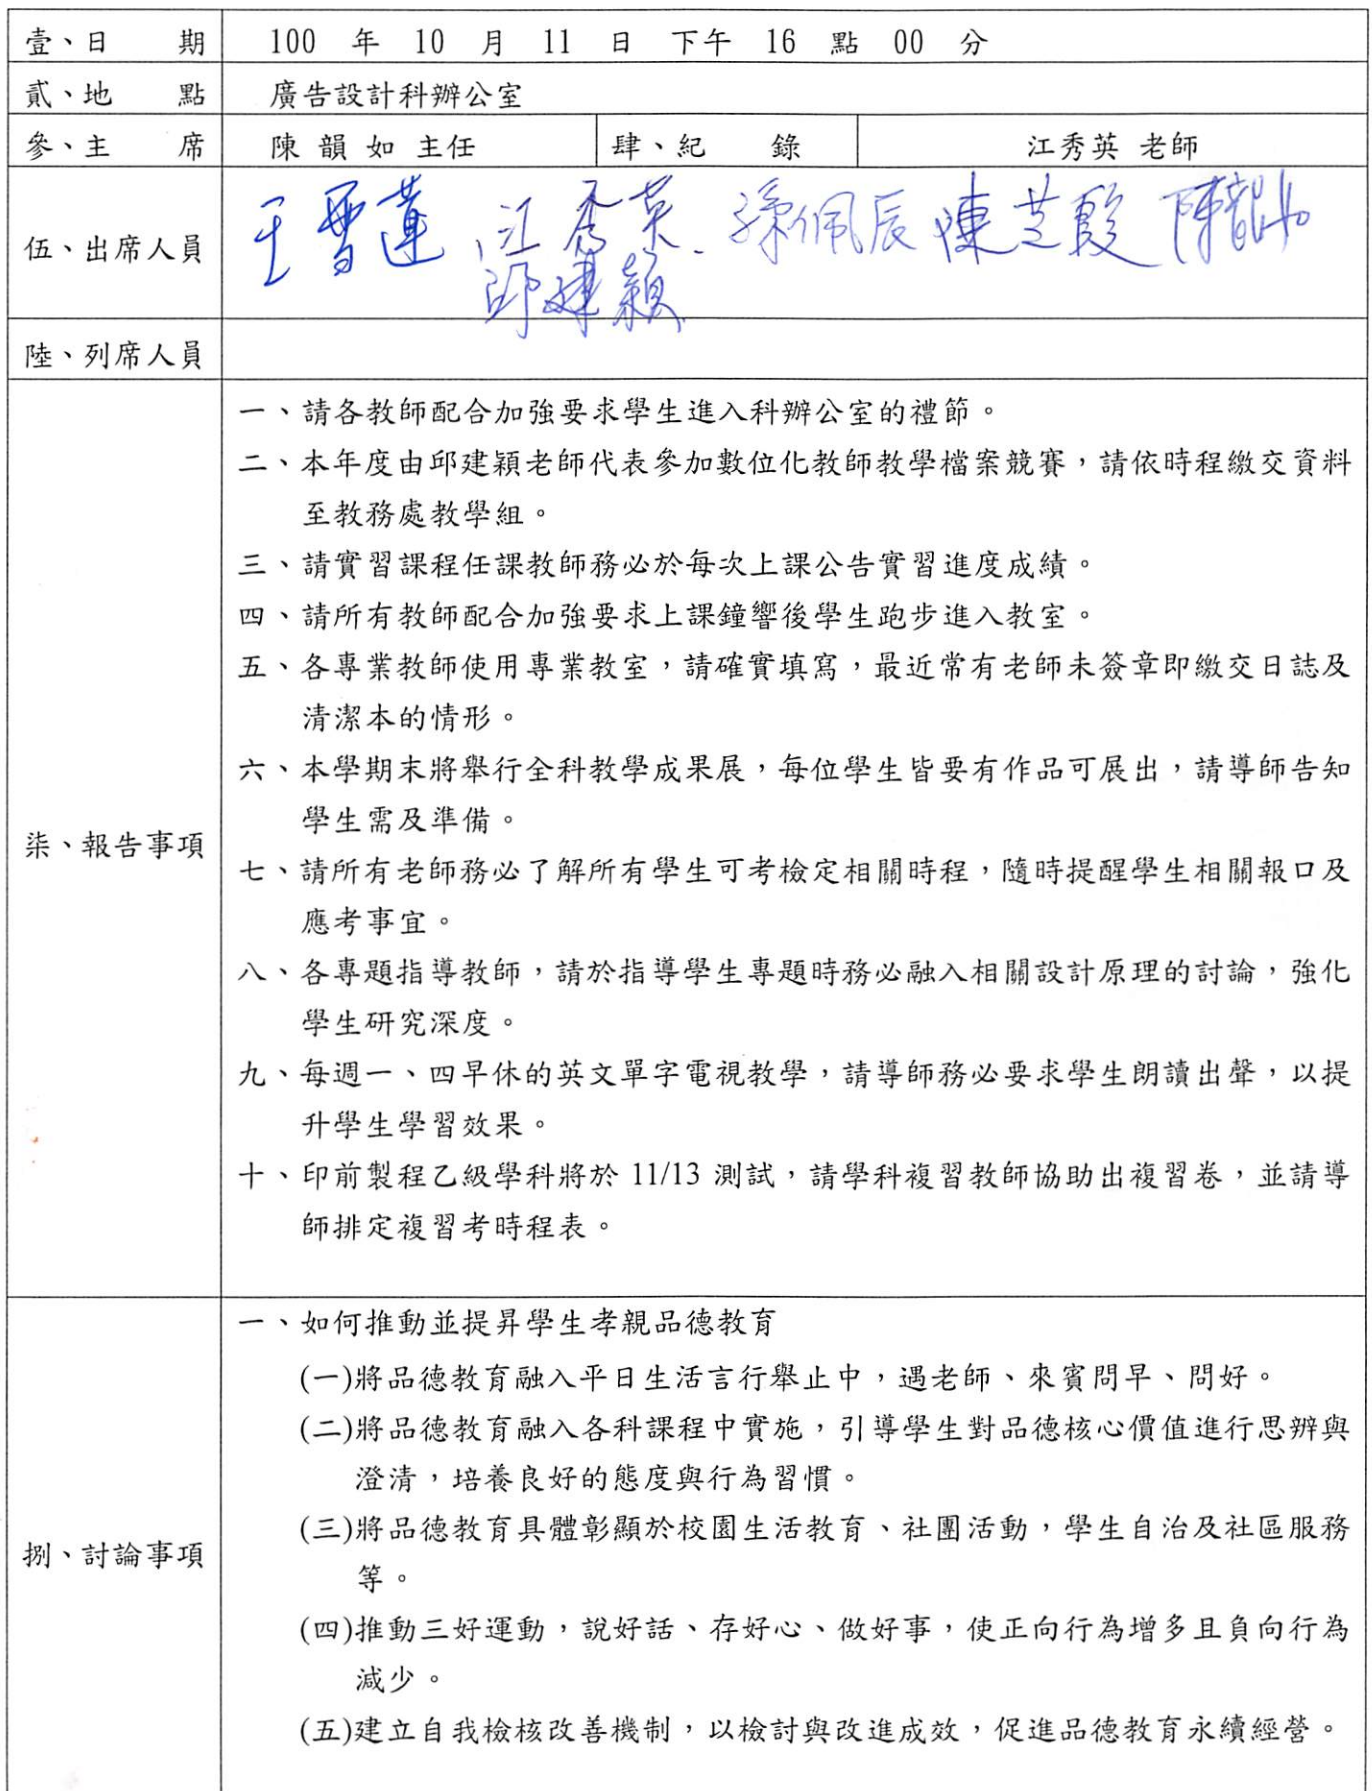 壹、日 期 100 年 10 月 11 日 下午 16 點 00 分
貳、地 點 廣告設計科辦公室
參、主 席 陳 韻 如 主任 肆、紀 錄 江秀英 老師
伍、出席人員 王雪蓮 江秀英 孫佩辰 陳芝毅 陳韻如
邱建穎
陸、列席人員
柒、報告事項
一、請各教師配合加強要求學生進入科辦公室的禮節。
二、本年度由邱建穎老師代表參加數位化教師教學檔案競賽,請依時程繳交資料
至教務處教學組。
三、請實習課程任課教師務必於每次上課公告實習進度成績。
四、請所有教師配合加強要求上課鐘響後學生跑步進入教室。
五、各專業教師使用專業教室,請確實填寫,最近常有老師未簽章即繳交日誌及
清潔本的情形。
六、本學期末將舉行全科教學成果展,每位學生皆要有作品可展出,請導師告知
學生需及準備。
七、請所有老師務必了解所有學生可考檢定相關時程,隨時提醒學生相關報口及
應考事宜。
八、各專題指導教師,請於指導學生專題時務必融入相關設計原理的討論,強化
學生研究深度。
九、每週一、四早休的英文單字電視教學,請導師務必要求學生朗讀出聲,以提
升學生學習效果。
十、印前製程乙級學科將於 11/13 測試,請學科複習教師協助出複習卷,並請導
師排定複習考時程表。
捌、討論事項
一、如何推動並提昇學生孝親品德教育
(一)將品德教育融入平日生活言行舉止中,遇老師、來賓問早、問好。
(二)將品德教育融入各科課程中實施,引導學生對品德核心價值進行思辨與
澄清,培養良好的態度與行為習慣。
(三)將品德教育具體彰顯於校園生活教育、社團活動,學生自治及社區服務
等。
(四)推動三好運動,說好話、存好心、做好事,使正向行為增多且負向行為
減少。
(五)建立自我檢核改善機制,以檢討與改進成效,促進品德教育永續經營。